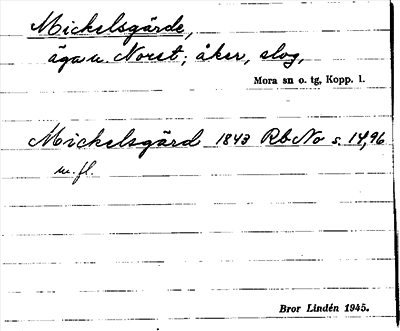 Mickelsgärde,
äga u. Norst; åker, slog,
Mora sn o. tg, Kopp. l.
Mickelsgärd 1843 Rb No s. 14, 96
m. fl.
Bror Lindén 1945.